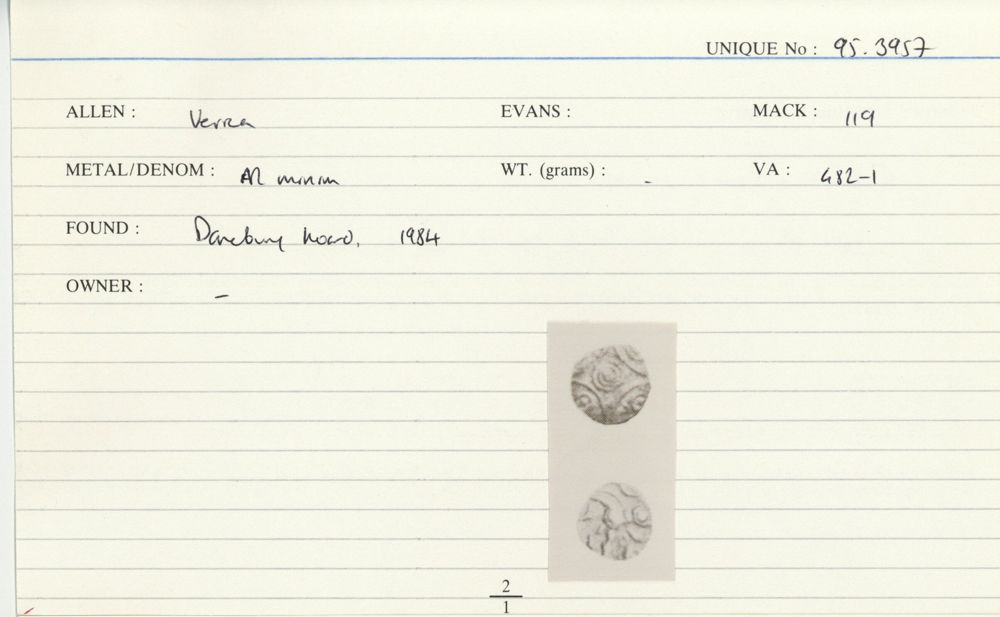 UNIQUE No : 95.3957
ALLEN : Verica EVANS : MACK : 119
METAL/DENOM : AR minim WT. (grams) : - VA : 482-1
FOUND : Danebury hoard, 1984
OWNER : -
2
1